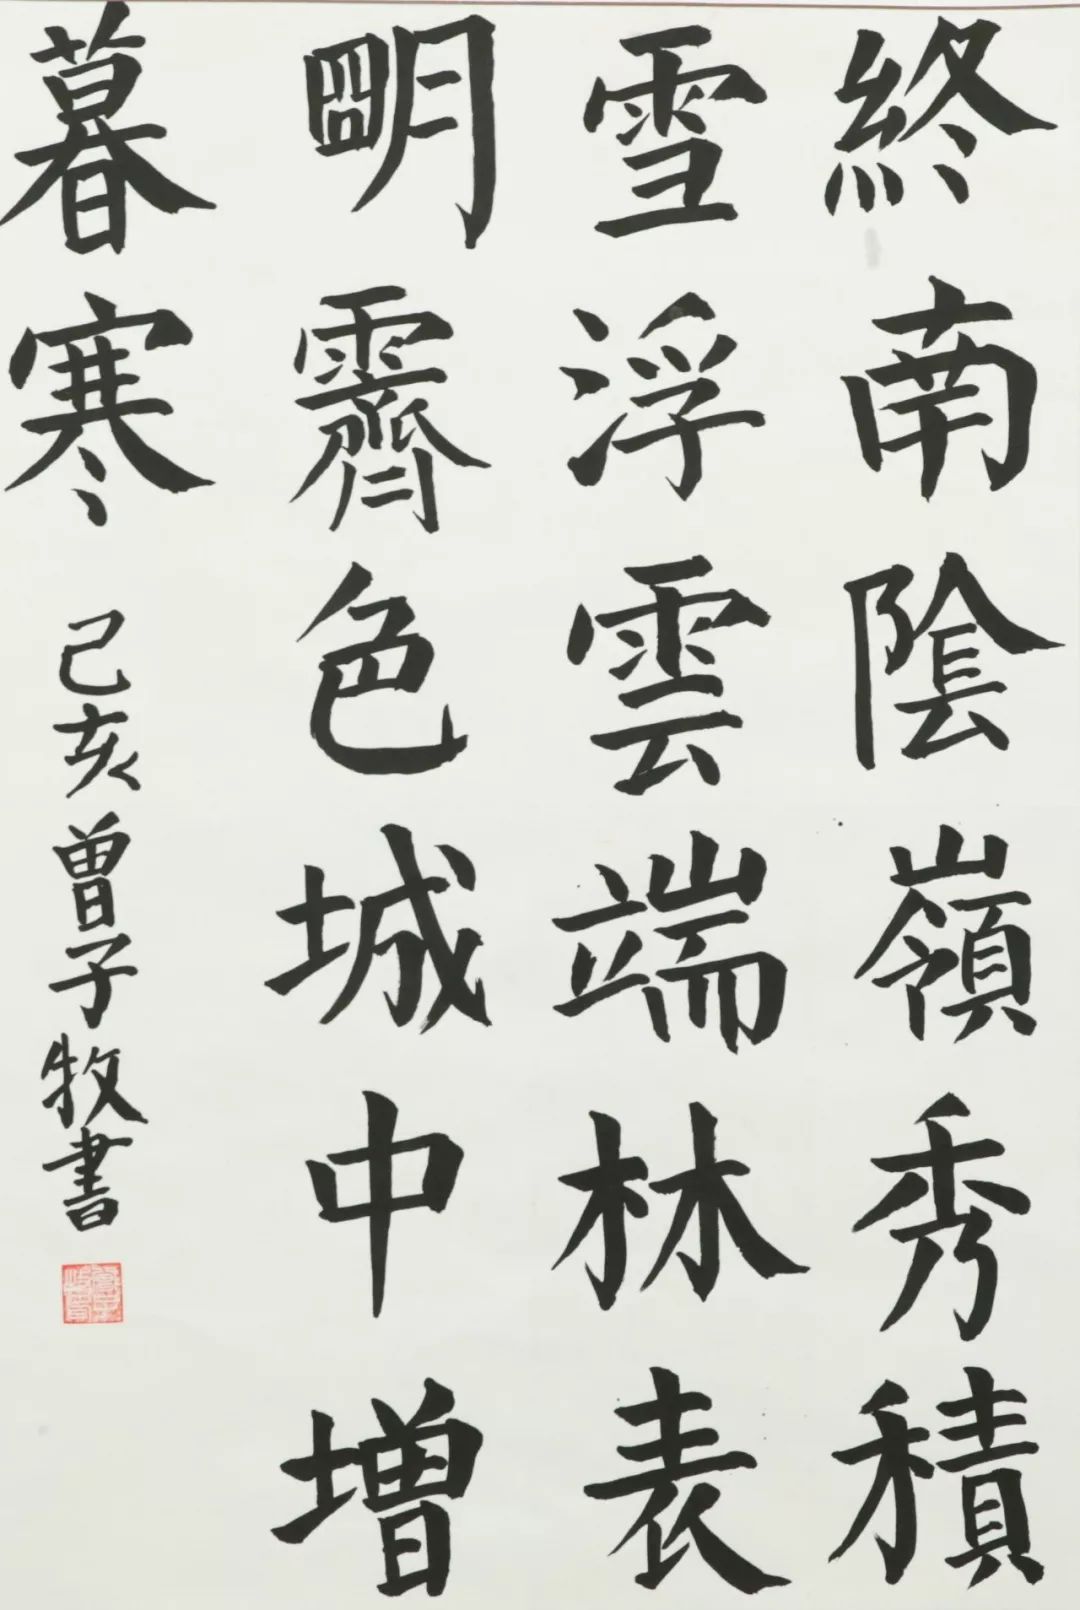 終南陰嶺秀積
雪浮雲端林表
明霽色城中增
暮寒
己亥曾子牧書